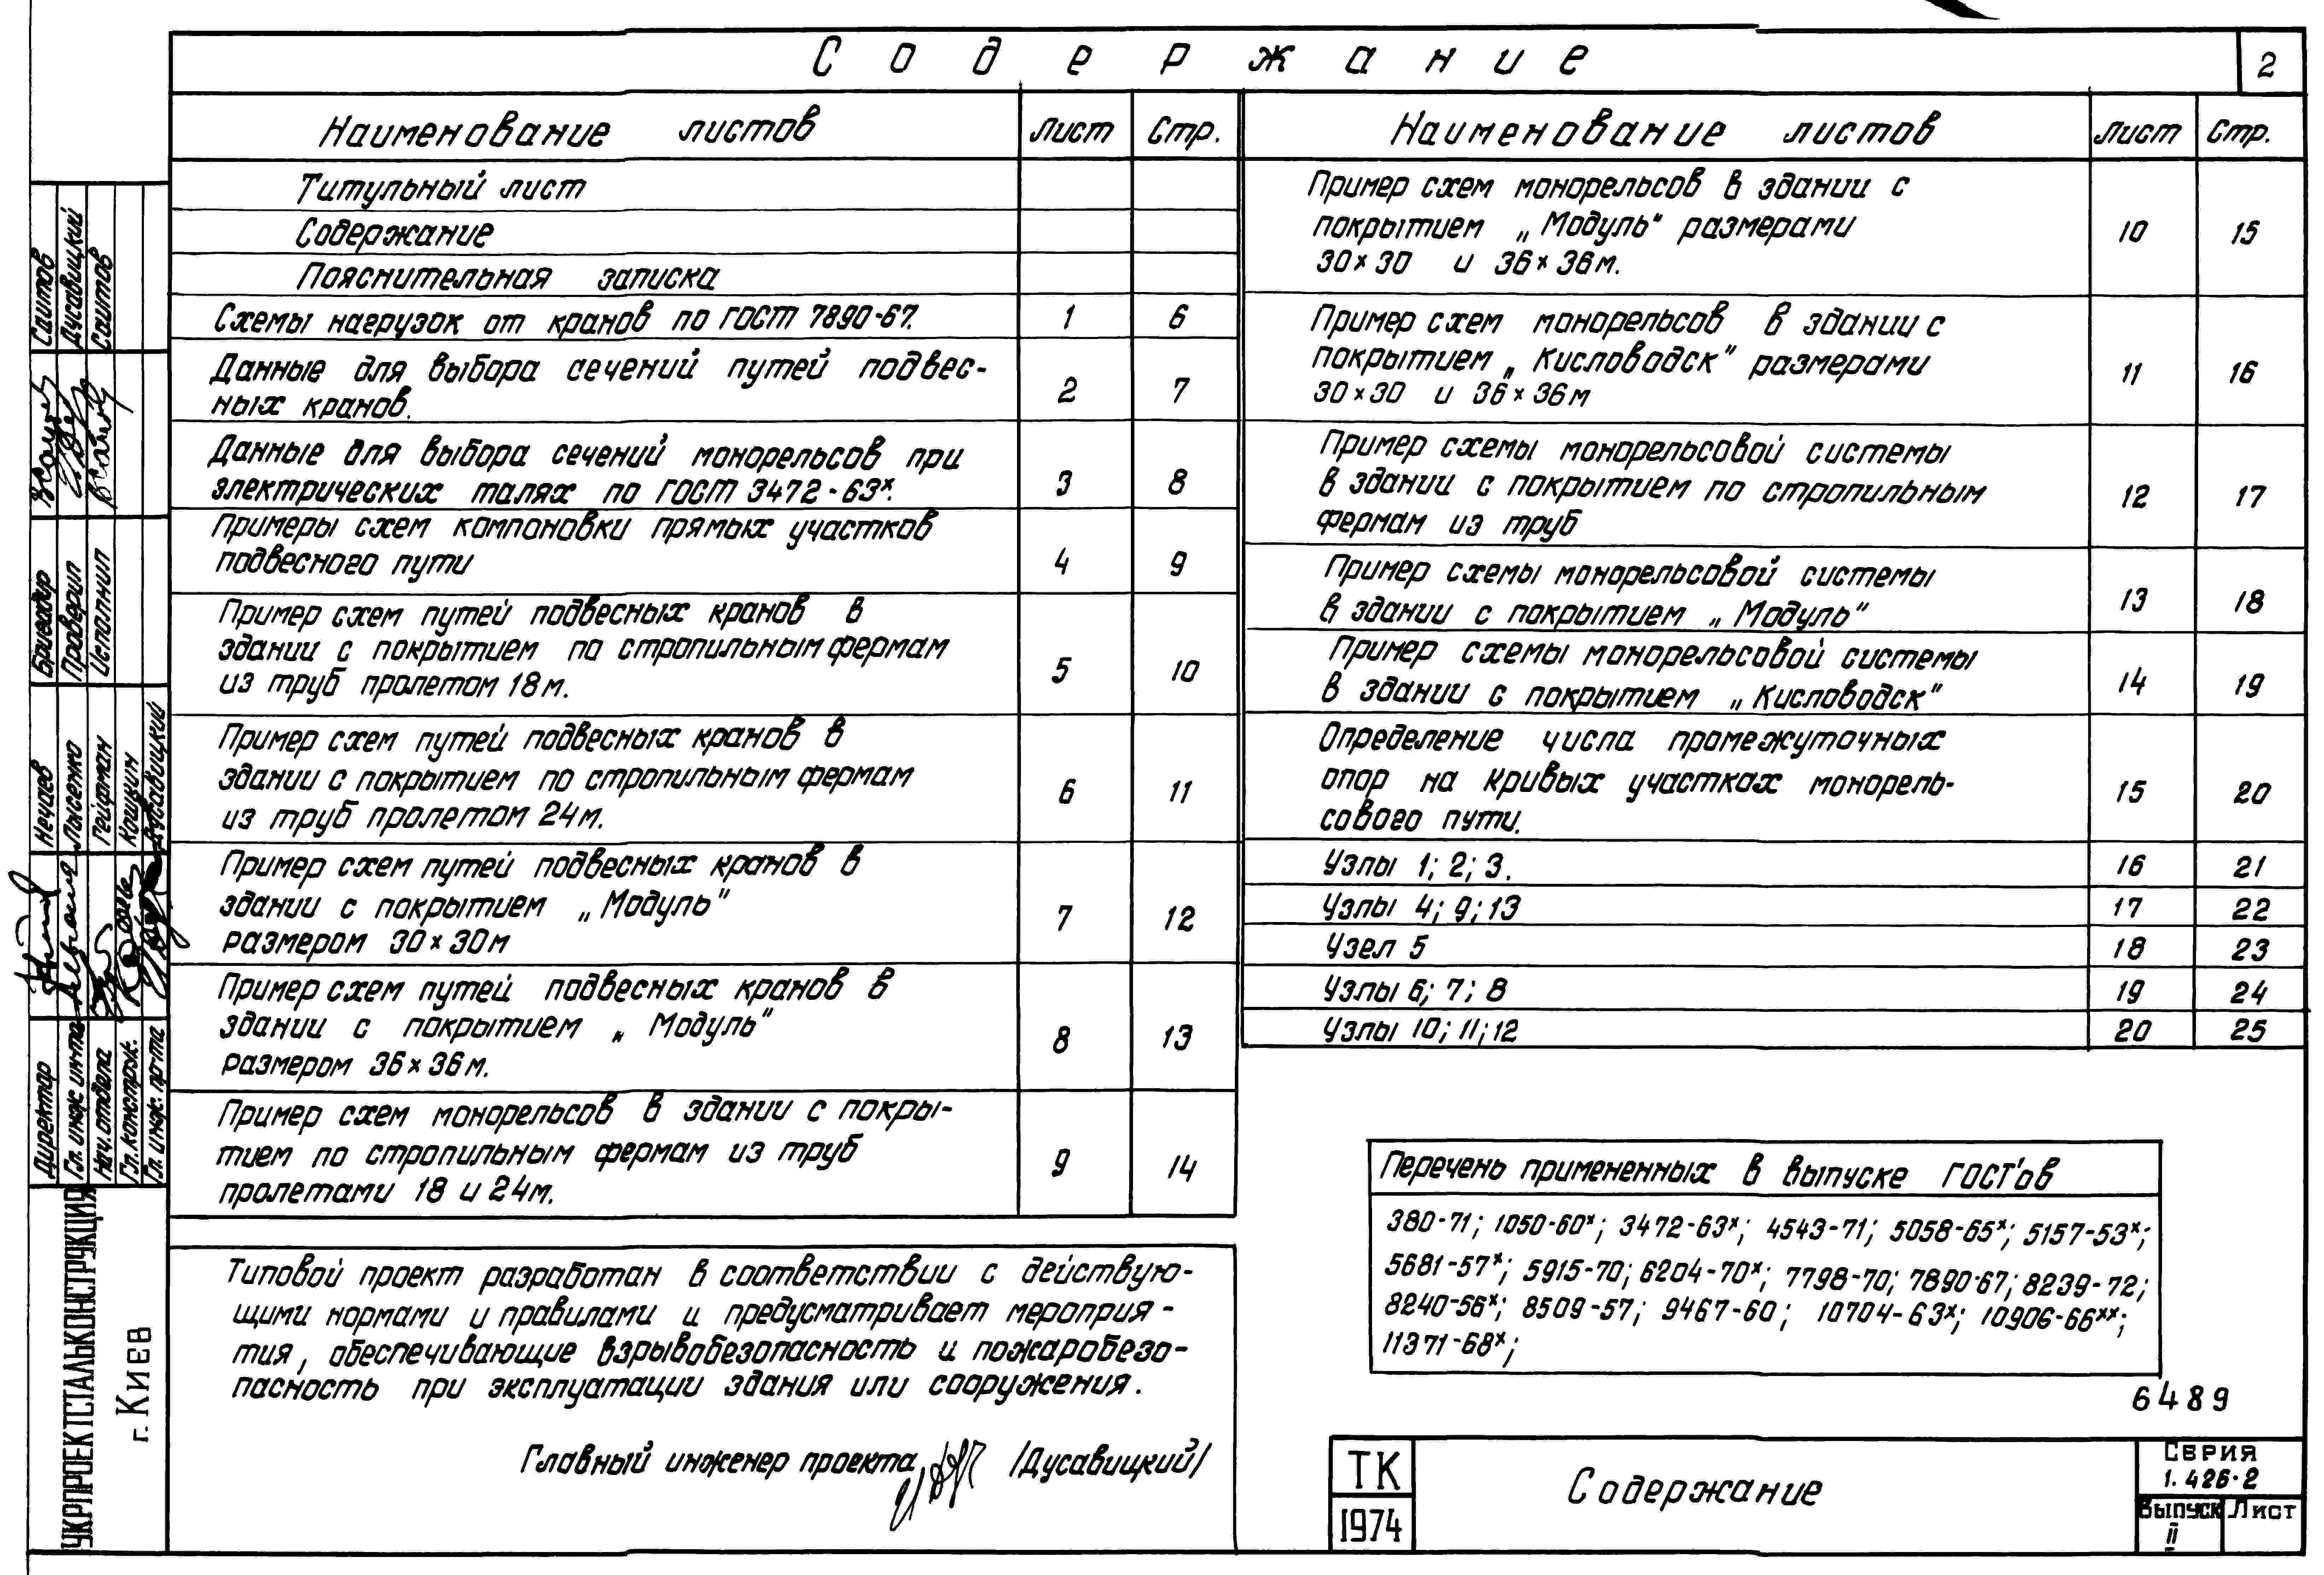 Содержание
2
Наименование листов Лист Стр.
Титульный лист
Содержание
Пояснительная записка
Схемы нагрузок от кранов по ГОСТ 7890-67. 1 6
Данные для выбора сечений путей подвес-
ных кранов. 2 7
Данные для выбора сечений монорельсов при
электрических талях по ГОСТ 3472-63ˣ. 3 8
Примеры схем компоновки прямых участков
подвесного пути 4 9
Пример схем путей подвесных кранов в
здании с покрытием по стропильным фермам
из труб пролетом 18м. 5 10
Пример схем путей подвесных кранов в
здании с покрытием по стропильным фермам
из труб пролетом 24м. 6 11
Пример схем путей подвесных кранов в
здании с покрытием „Модуль"
размером 30×30м 7 12
Пример схем путей подвесных кранов в
здании с покрытием „Модуль"
размером 36×36м. 8 13
Пример схем монорельсов в здании с покры-
тием по стропильным фермам из труб
пролетами 18 и 24м. 9 14
Наименование листов Лист Стр.
Пример схем монорельсов в здании с
покрытием „Модуль" размерами
30×30 и 36×36м. 10 15
Пример схем монорельсов в здании с
покрытием „Кисловодск" размерами
30×30 и 36×36м 11 16
Пример схемы монорельсовой системы
в здании с покрытием по стропильным
фермам из труб 12 17
Пример схемы монорельсовой системы
в здании с покрытием „Модуль" 13 18
Пример схемы монорельсовой системы
в здании с покрытием „Кисловодск" 14 19
Определение числа промежуточных
опор на кривых участках монорель-
сового пути. 15 20
Узлы 1; 2; 3. 16 21
Узлы 4; 9; 13 17 22
Узел 5 18 23
Узлы 6; 7; 8 19 24
Узлы 10; 11; 12 20 25
Типовой проект разработан в соответствии с действую-
щими нормами и правилами и предусматривает мероприя-
тия, обеспечивающие взрывобезопасность и пожаробезо-
пасность при эксплуатации здания или сооружения.
Главный инженер проекта /Дусавицкий/
Перечень примененных в выпуске ГОСТ'ов
380-71; 1050-60ˣ; 3472-63ˣ; 4543-71; 5058-65ˣ; 5157-53ˣ;
5681-57ˣ; 5915-70; 6204-70ˣ; 7798-70; 7890-67; 8239-72;
8240-56ˣ; 8509-57; 9467-60; 10704-63ˣ; 10906-66ˣˣ;
11371-68ˣ;
6489
ТК
1974
Содержание
Серия
1.426-2
Выпуск Лист
II
Саитов
Дусавицкий
Саитов
Бригадир
Проверил
Исполнил
Нечаев
Лысенко
Гейфман
Кошин
Дусавицкий
Директор
Гл. инж. ин-та
Нач. отдела
Гл. констрк.
Гл. инж. пр-та
УКРПРОЕКТСТАЛЬКОНСТРУКЦИЯ
г. Киев